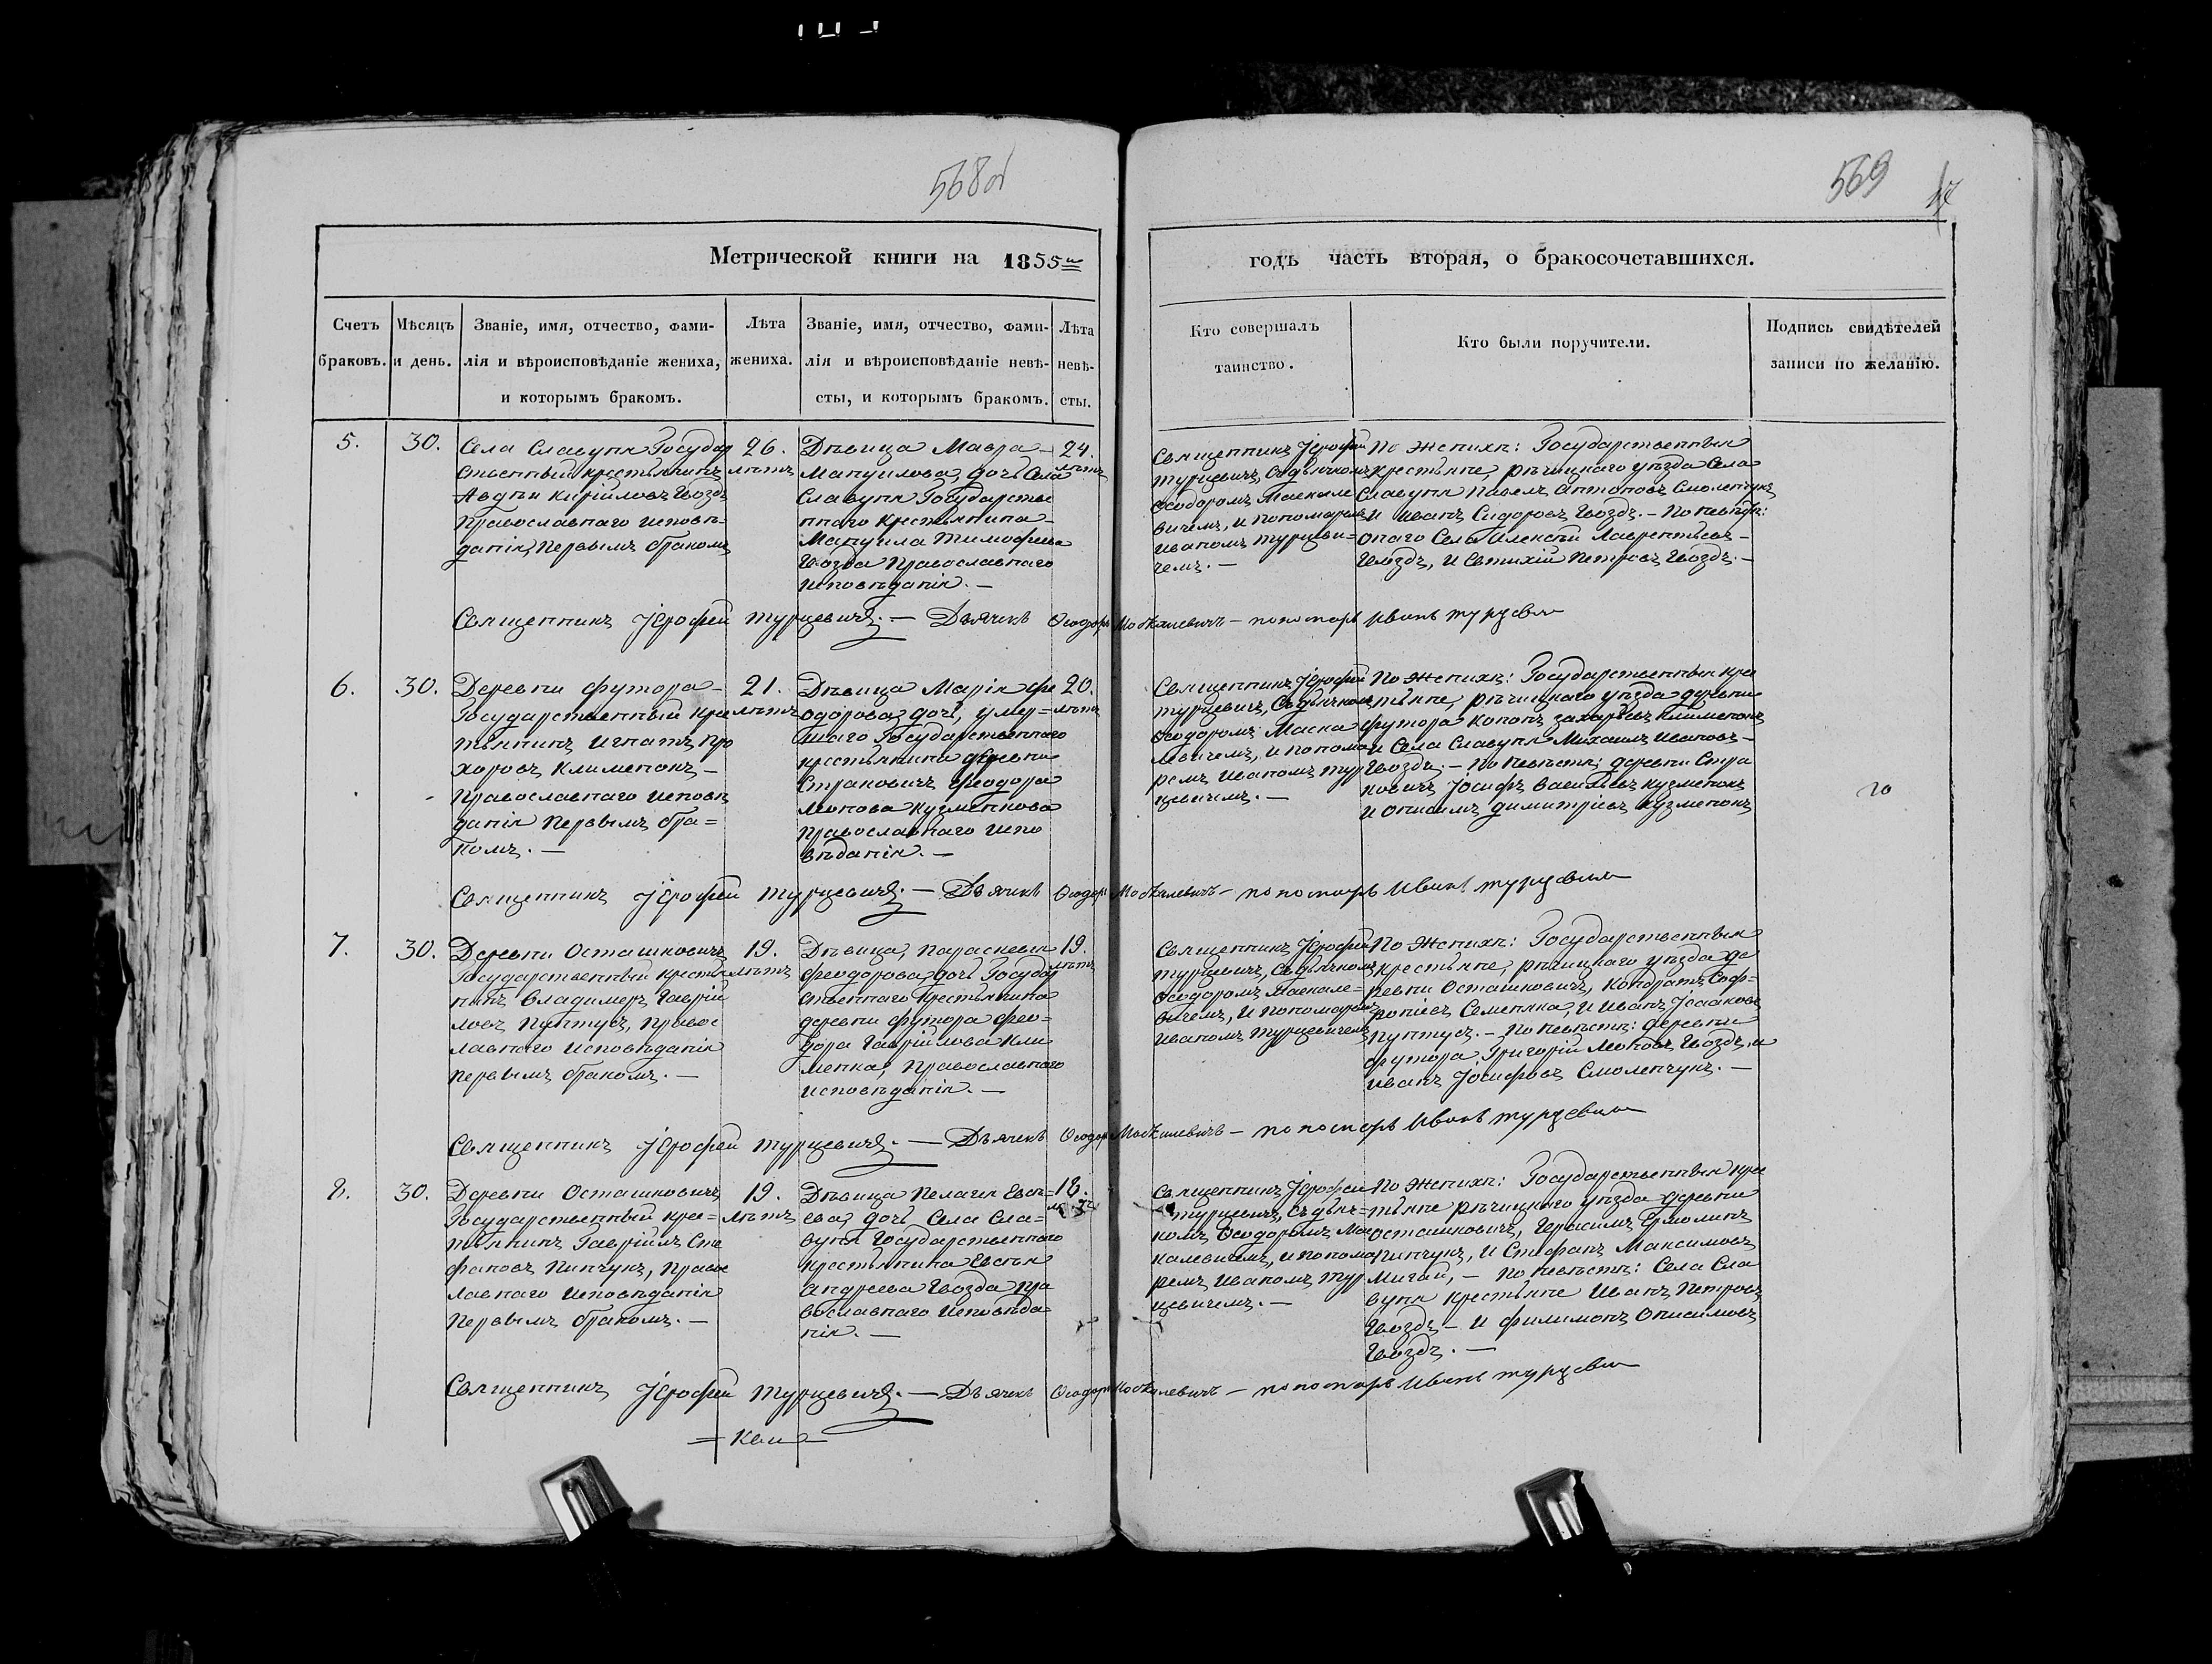 568об
569
Метрической книги на 1855й
годъ часть вторая, о бракосочетавшихся.
Счетъ браковъ.
Мѣсяцъ и день.
Званіе, имя, отчество, фами-
лія и вѣроисповѣданіе жениха,
и которымъ бракомъ.
Лѣта
жениха.
Званіе, имя, отчество, фами-
лія и вѣроисповѣданіе невѣ-
сты, и которымъ бракомъ.
Лѣта
невѣ-
сты.
Кто совершалъ
таинство.
Кто были поручители.
Подпись свидѣтелей
записи по желанію.
5.
30.
Села Славупя Государ
ственный крестьянинъ
Авдѣй Кирійловъ Гвоздь
Православнаго исповѣ-
данія, Первымъ бракомъ
26.
лѣтъ
Дѣвица Мавра
Мануилова, дочь Села
Славупя Государстве
ннаго крестьянина
Мануила Тимофеева
Гвозда Православнаго
исповѣданія. —
24.
лѣтъ
Священникъ Іерофей
Турцевичъ, Съ дьячкомъ
Ѳеодоромъ Маскале
вичемъ, и пономаремъ
Иваномъ Турцеви=
чемъ. —
По женихѣ: Государственныя
крестьяне, рѣчицкаго уѣзда Села
Славупя Павелъ Антоновъ Смоленчукъ
и Иванъ Сидоровъ Гвоздь. — По невѣстѣ:
онаго Села Алексѣй Лаврентьевъ
Гвоздь, и Евтихій Петровъ Гвоздь. —
Священникъ Іерофей Турцевичъ. — Дьячекъ Ѳеодоръ Москалевичъ — пономарь Иванъ Турцевич
6.
30.
Деревни Футора
Государственный кре
тьянинъ Игнатъ Про
хоровъ Клименокъ
Православнаго исповѣ
данія Первымъ бра=
комъ. —
21.
лѣтъ
Дѣвица Марія Фе
одорова, дочь, умер=
шаго Государственнаго
крестьянина деревни
Страковичъ Феодора
Леонова Кузменкова
Православнаго испо
вѣданія. —
20.
лѣтъ
Священникъ Іерофей
Турцевичъ, Съ дьячкомъ
Ѳеодоромъ Маска
левичемъ, и понома
ремъ Иваномъ Тур
цевичемъ. —
По женихѣ: Государственныя кре
стьяне, рѣчицкаго уѣзда деревни
Футора Конанъ Захарьевъ Клименокъ
и Села Славупя Михаилъ Ивановъ
Гвоздь. — По невѣстѣ: деревни Стра
ковичъ Іосифъ Васильевъ Кузменокъ
и Онисимъ Димитріевъ Кузменокъ
Священникъ Іерофей Турцевичъ. — Дьячекъ Ѳеодоръ Москалевичъ — пономарь Иванъ Турцевич
7.
30.
Деревни Осташковичъ
Государственный крестья
нинъ Владимеръ Гаврій
ловъ Пунтусъ, Правос
лавнаго исповѣданія
первымъ бракомъ. —
19.
лѣтъ
Дѣвица, Параскевія
Феодорова дочь Государ
ственнаго крестьянина
деревни Футора Фео=
дора Гаврійлова Кли
менка, Православнаго
исповѣданія. —
19.
лѣтъ
Священникъ Іерофей
Турцевичъ, Съ дьячкомъ
Ѳеодоромъ Маскале=
вичемъ, и пономаремъ
Иваномъ Турцевичемъ
По женихѣ: Государственныя
крестьяне, рѣчицкаго уѣзда де
ревни Осташковичъ, Кондратъ Соф-
роніевъ Семеняка, и Иванъ Ісааковъ
Пунтусъ. — По невѣстѣ: деревни
Футора Григорій Леоновъ Гвоздь, и
Иванъ Іосифовъ Смоленчукъ. —
Священникъ Іерофей Турцевичъ. — Дьячекъ Ѳеодоръ Москалевичъ — пономарь Иванъ Турцевич
8.
30.
Деревни Осташковичъ
Государственный кре=
тьянинъ Гаврійлъ Сте
фановъ Пинчукъ, Правос
лавнаго исповѣданія
Первымъ бракомъ. —
19.
лѣтъ
Дѣвица Пелагія Евсѣ=
ева, дочь Села Сла=
вупя Государственнаго
крестьянина Евсѣя
Андреева Гвозда Пра
вославнаго исповѣда=
нія. —
18.
Священникъ Іерофей
Турцевичъ, Съ дьяч=
комъ Ѳеодоромъ Мас
калевичемъ, и понома
ремъ Иваномъ Тур
цевичемъ. —
По женихѣ: Государственныя кре
стьяне рѣчицкаго уѣзда деревни
Осташковичъ, Герасимъ Ермолинъ
Пинчукъ, и Стефанъ Максимовъ
Мигай, — По невѣстѣ: Села Сла
вупя крестьяне Иванъ Петровъ
Гвоздь — и Филимонъ Онисимовъ
Гвоздь. —
Священникъ Іерофей Турцевичъ. — Дьячекъ Ѳеодоръ Москалевичъ — пономарь Иванъ Турцевич